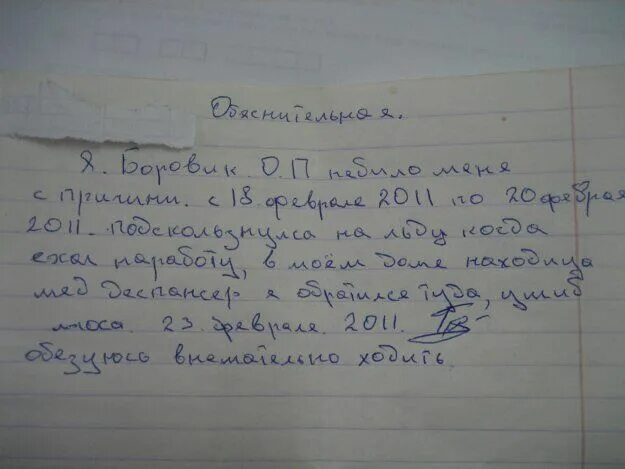 Обяснительная.
Я. Боровик О.П небило меня
с причини. с 18 феврале 2011 по 20 феврая
2011. подскользнулса на льду когда
ехал наработу, в моём доме находица
мед деспансер я обратился туда, ушиб
носа. 23. феврале. 2011.
обезуюсь внемательно ходить.